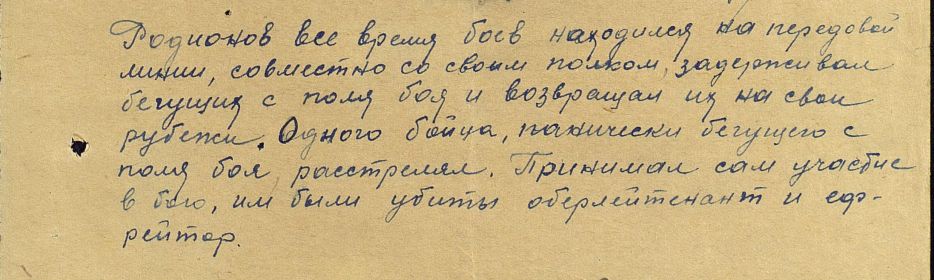 Родионов все время боев находился на передовой
линии, совместно со своим полком, задерживал
бегущих с поля боя и возвращал их на свои
рубежи. Одного бойца, панически бегущего с
поля боя, расстрелял. Принимал сам участие
в бою, им были убиты оберлейтенант и еф-
рейтор.